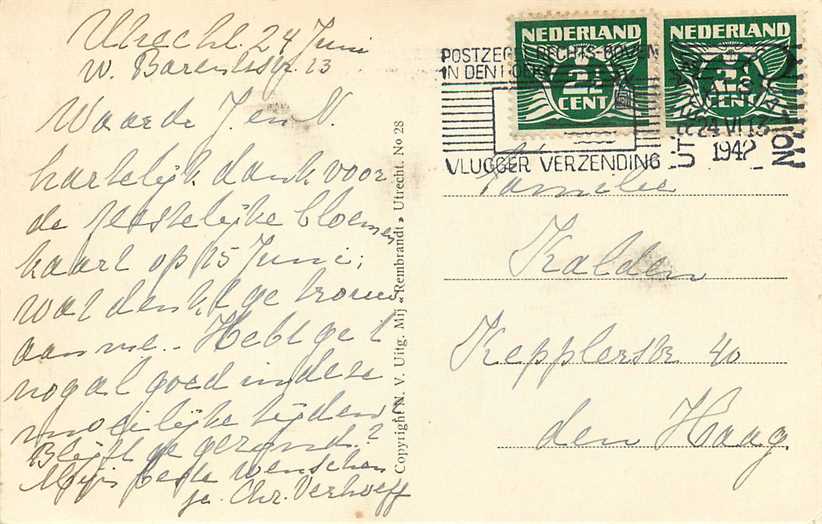 Utrecht 24 Juni
W. Barentsstr. 13
Waarde J. en V.
hartelijk dank voor
de feestelijke bloemen
kaart op 15 Juni;
wat denkt ge trouw
aan me. Hebt ge 't
nogal goed in deze
moeilijke tijden
Blijft ge gezond?
Mijn beste wenschen
je. Chr. Verhoeff
Copyright N. V. Uitg. Mij «Rembrandt» Utrecht. No 28
NEDERLAND
2½
CENT
NEDERLAND
CENT
POSTZEGEL RECHTS BOVEN
IN DEN HOEK
VLUGGER VERZENDING
UTRECHT STATION
24 VI 13
1942
Familie
Kalden
Kepplerstr 40
den Haag